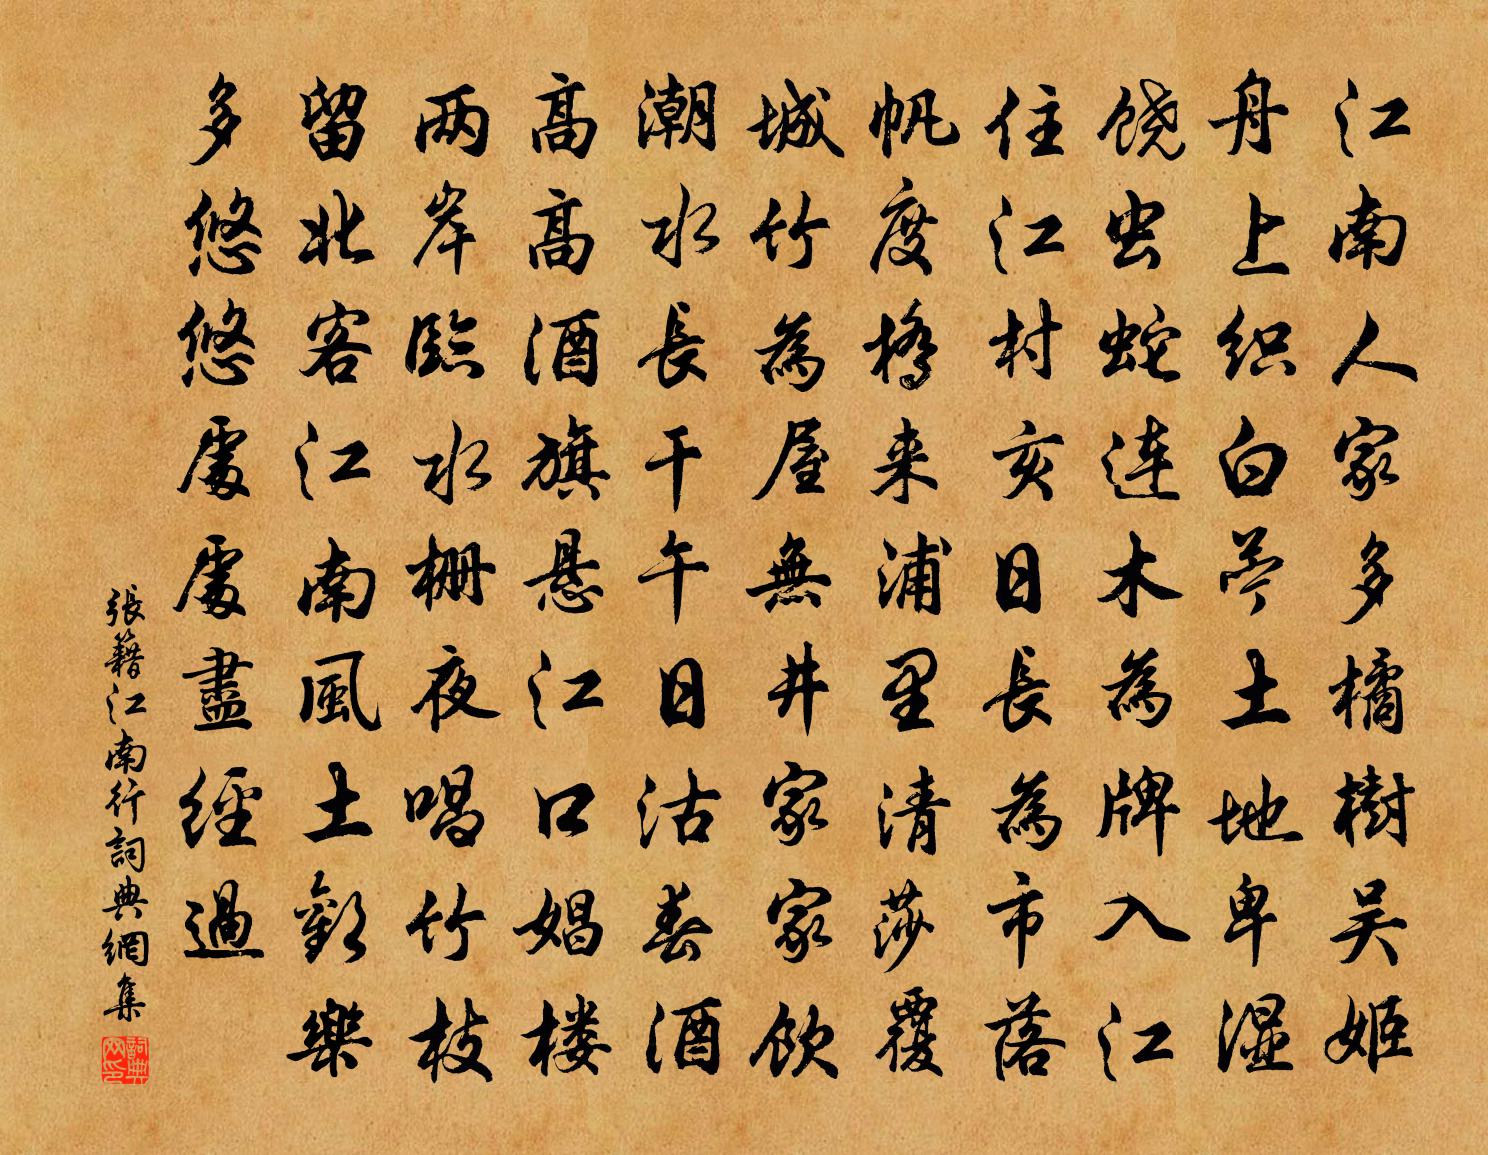 江南人家多橘樹吴姬
舟上织白苎土地卑湿
饶虫蛇連木為牌入江
住江村亥日長為市落
帆度橋来浦里清莎覆
城竹為屋無井家家飲
潮水長干午日沽春酒
高高酒旗悬江口娼楼
两岸臨水栅夜唱竹枝
留北客江南風土歡樂
多悠悠處處盡經過
張籍江南行詞典網集
詞典网印